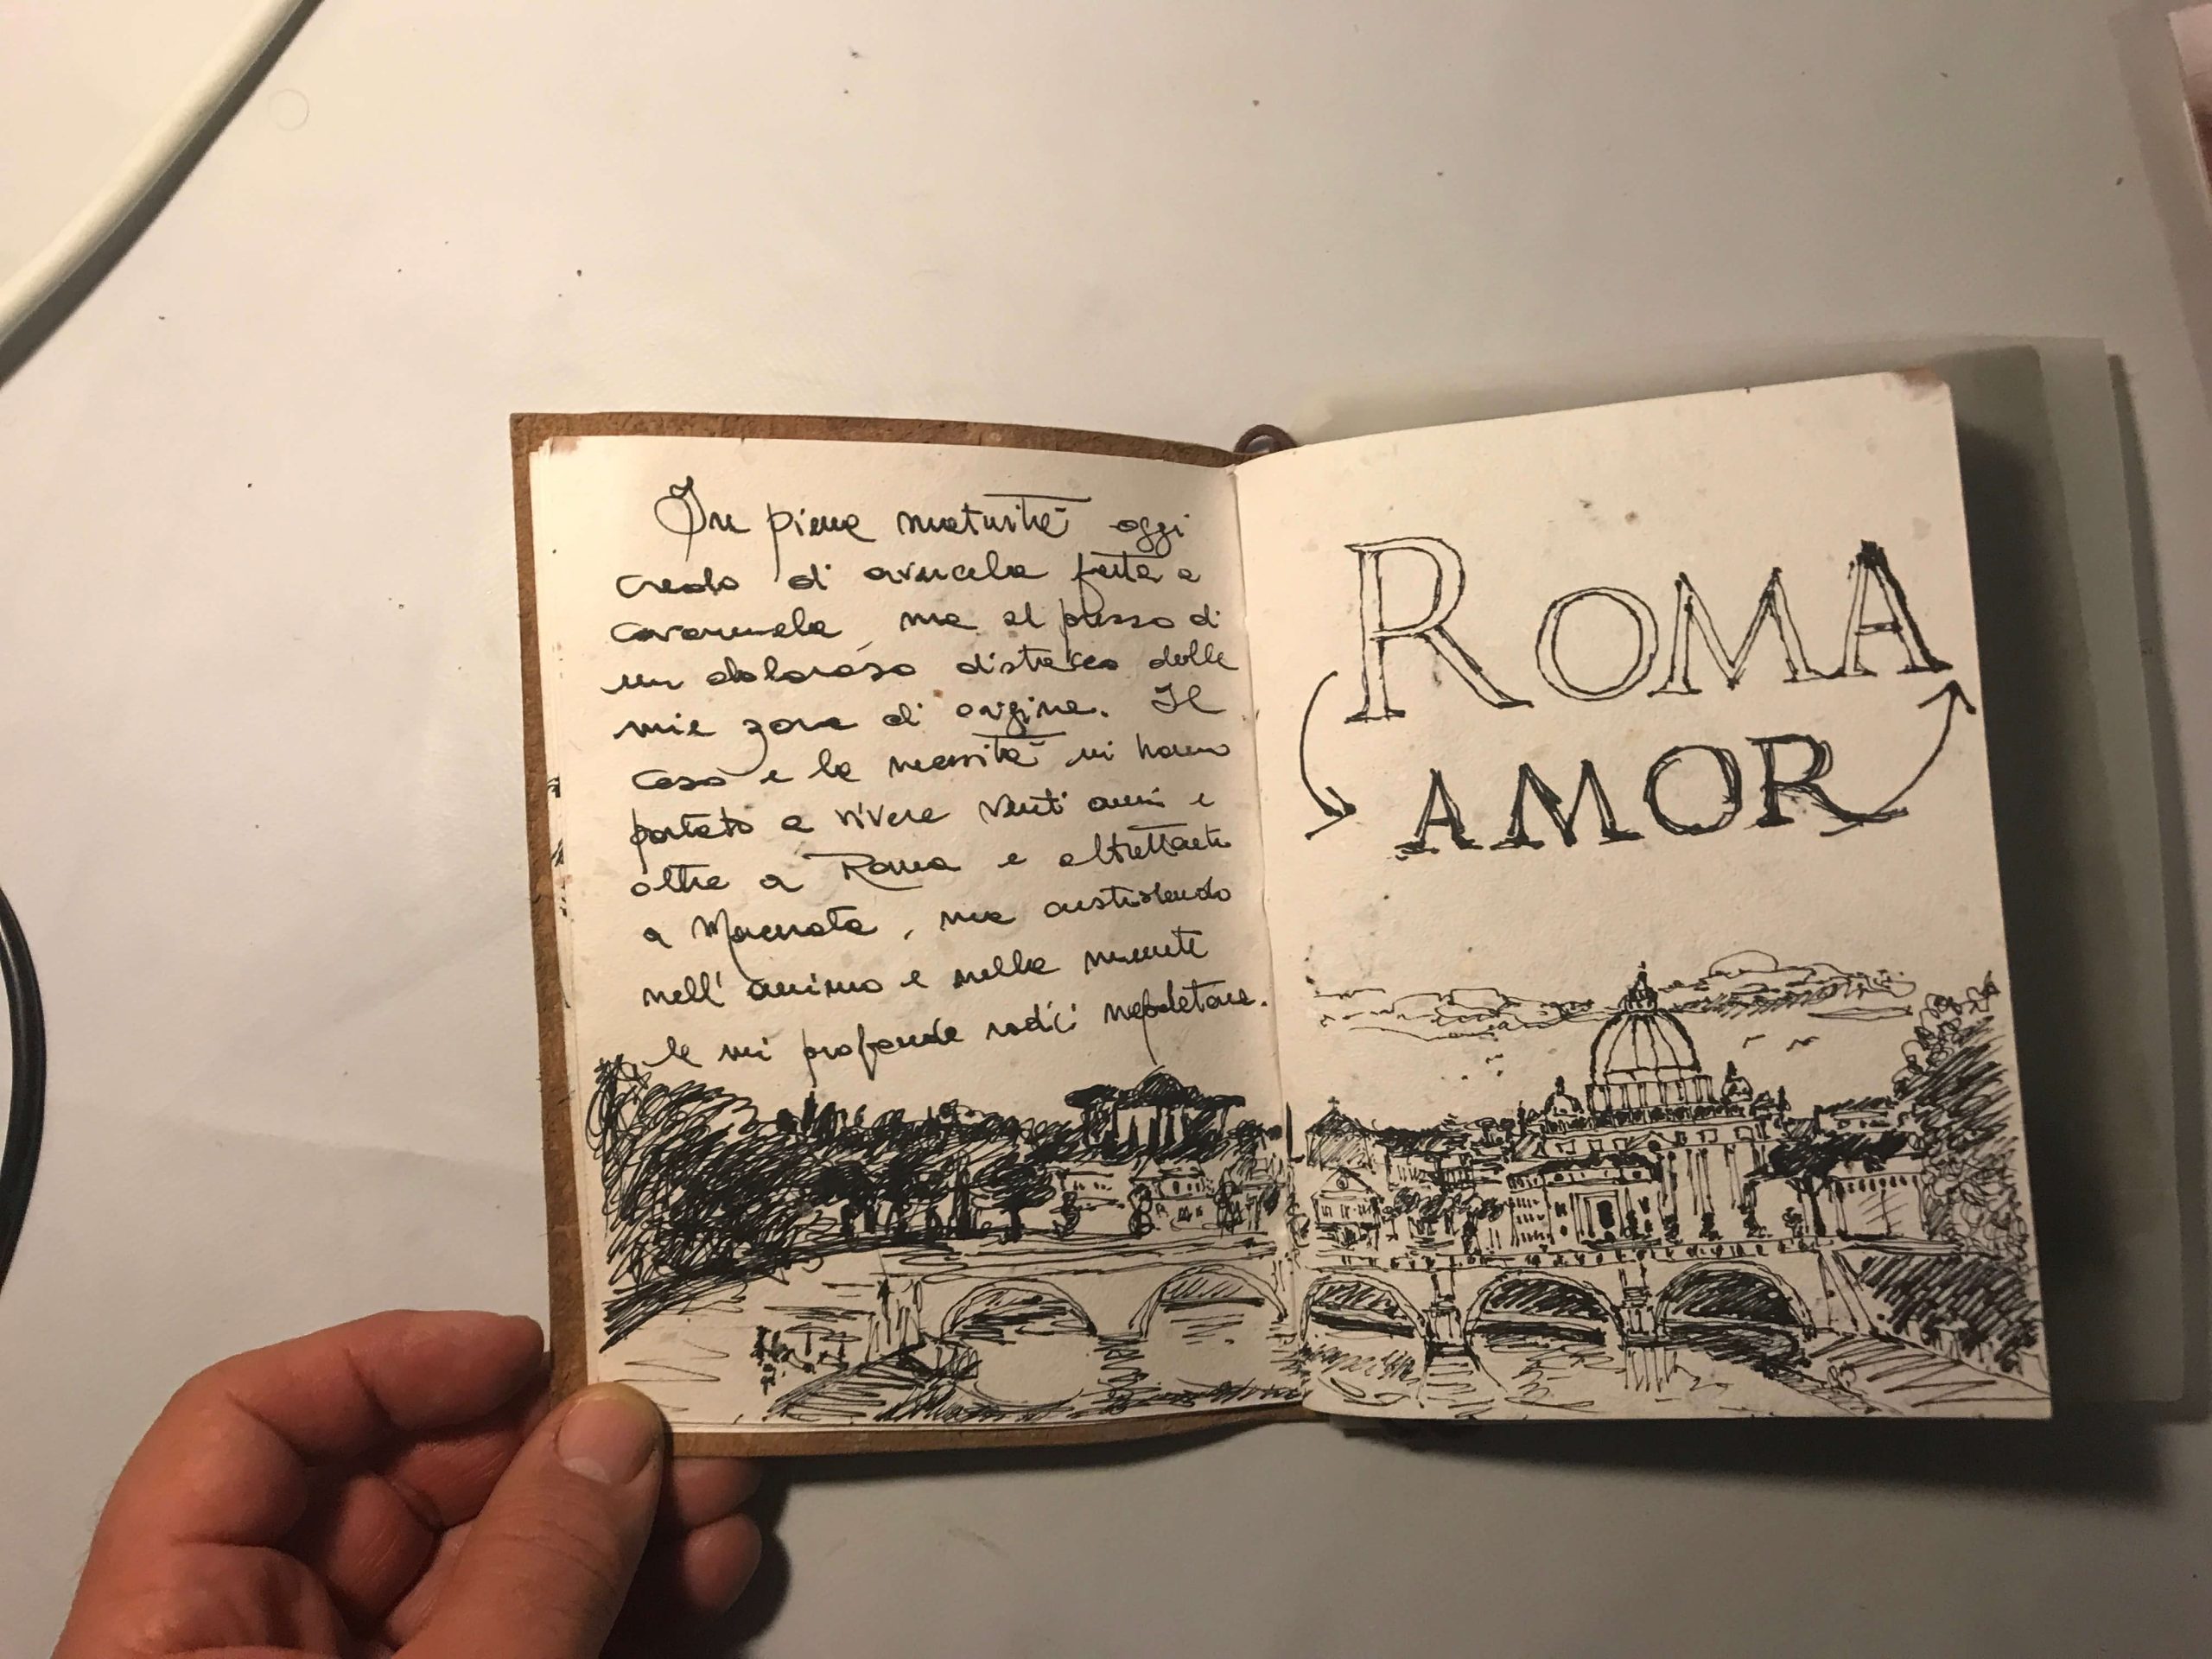 In piena maturità oggi
credo di avercela fatta a
cavarmela, ma al prezzo di
un doloroso distacco dalla
mia zona di origine. Il
caso e la necessità mi hanno
portato a vivere venti anni e
oltre a Roma e altrettanti
a Macerata, ma custodendo
nell'animo e nella mente
le mi profonde radici napoletane.
ROMA
AMOR